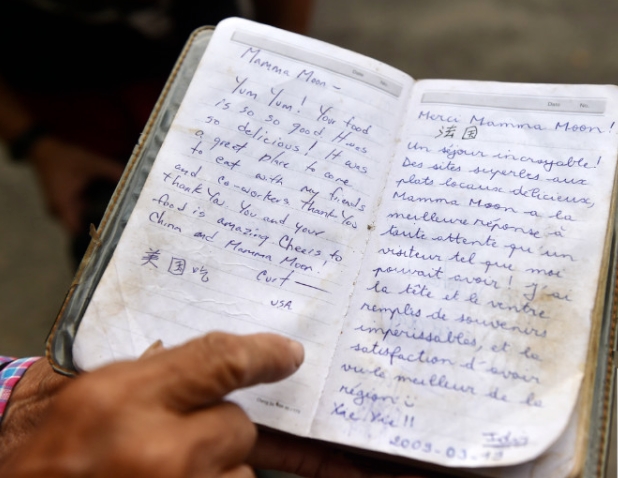 Date No.
Mamma Moon –
Yum Yum! You food
is so so good It was
so delicious! It was
a great place to come
to eat with my friends
and co-workers Thank You
thank You. You and your
food is amazing Cheers to
China and Mamma Moon!
Curt
美国
USA
Date No.
Merci Mamma Moon!
法国
Un séjour incroyable!
Des sites superbes aux
plats locaux délicieux,
Mamma Moon a la
meilleure réponse à
toute attente qu'un
visiteur tel que moi
pouvait avoir! J'ai
la tête et le ventre
remplis de souvenirs
impérissables, et la
satisfaction d'avoir
vu le meilleur de la
région
Xie Xie!!
2009-03-